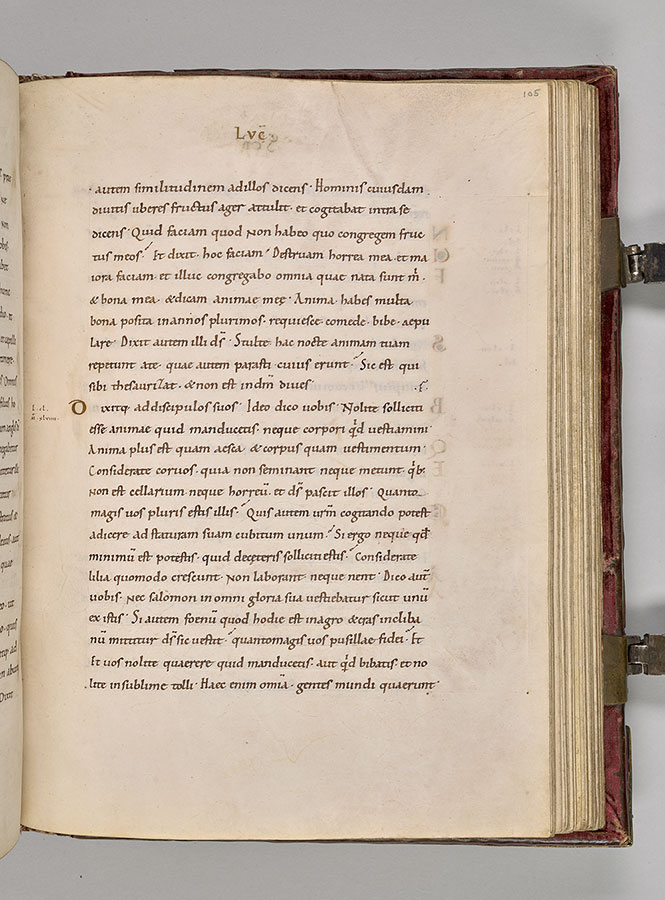 105
LVC̄
autem similitudinem ad illos dicens · Hominis cuiusdam
divitis uberes fructus ager attulit · et cogitabat intra se
dicens · Quid faciam quod Non habeo quo congregem fruc
tus meos · Et dixit · hoc faciam · Destruam horrea mea · et ma
iora faciam · et illuc congregabo omnia quae nata sunt m̄ ·
& bona mea · & dicam animae meę · Anima · habes multa
bona posita in annos plurimos · requiesce · comede · bibe · aepu
lare · Dixit autem illi d̄s · Stulte · hac nocte animam tuam
repetunt a te · quae autem parasti · cuius erunt · Sic est qui
sibi thesaurizat · & non est in dm̄ dives ·
Dixitq; ad discipulos suos · Ideo dico uobis · Nolite solliciti
esse animae quid manducetis · neque corpori qd̄ vestiamini ·
Anima plus est quam aesca · & corpus quam vestimentum ·
Considerate corvos · quia non seminant neque metunt · qb;
Non est cellarium neque horreū · et d̄s pascit illos · Quanto
magis vos pluris estis illis · Quis autem vrm̄ cogitando potest
adicere ad staturam suam cubitum unum · Si ergo neque qd̄
minimū est potestis · quid de ceteris solliciti estis · Considerate
lilia quomodo crescunt · Non laborant · neque nent · Dico aut̄
vobis · Nec salomon in omni gloria sua vestiebatur sicut unū
ex istis · Si autem foenū quod hodie est in agro & cras in cliba
nū mittitur d̄s sic vestit · quanto magis vos pusillae fidei · Et
Et vos nolite quaerere quid manducetis · aut qd̄ bibatis · et no
lite in sublime tolli · Haec enim omīa · gentes mundi quaerunt ·